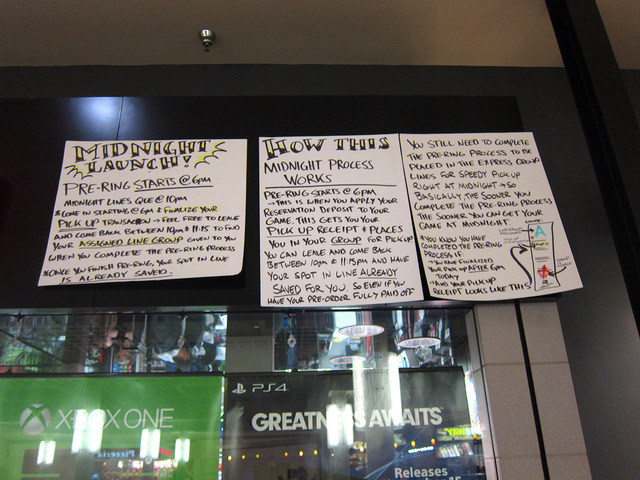 MIDNIGHT
LAUNCH!
PRE-RING STARTS @ 6pm
MIDNIGHT LINES QUE @ 10pm
* COME IN STARTING @ 6pm & FINALIZE YOUR
PICK UP TRANSACTION → FEEL FREE TO LEAVE
AND COME BACK BETWEEN 10pm & 11:15 TO FIND
YOUR ASSIGNED LINE GROUP GIVEN TO YOU
WHEN YOU COMPLETE THE PRE-RING PROCESS
* ONCE YOU FINISH PRE-RING, YOUR SPOT IN LINE
IS ALREADY SAVED.
HOW THIS
MIDNIGHT PROCESS
WORKS
PRE-RING STARTS @ 6pm
→ THIS IS WHEN YOU APPLY YOUR
RESERVATION DEPOSIT TO YOUR
GAME. THIS GETS YOU YOUR
PICK UP RECEIPT & PLACES
YOU IN YOUR GROUP FOR PICKUP
YOU CAN LEAVE AND COME BACK
BETWEEN 10pm & 11:15pm AND HAVE
YOUR SPOT IN LINE ALREADY
SAVED FOR YOU. SO EVEN IF YOU
HAVE YOUR PRE-ORDER FULLY PAID OFF
YOU STILL NEED TO COMPLETE
THE PRE-RING PROCESS TO BE
PLACED IN THE EXPRESS GROUP
LINES FOR SPEEDY PICK UP
RIGHT AT MIDNIGHT → SO
BASICALLY, THE SOONER YOU
COMPLETE THE PRE-RING PROCESS
THE SOONER YOU CAN GET YOUR
GAME AT MIDNIGHT.
* YOU KNOW YOU HAVE
COMPLETED THE PRE-RING
PROCESS IF:
→ YOU HAVE FINALIZED
YOUR PICK UP AFTER 6pm
TODAY
→ AND YOUR PICKUP
RECEIPT LOOKS LIKE THIS
A
XBOX ONE
PS4
GREATNESS AWAITS
Releases